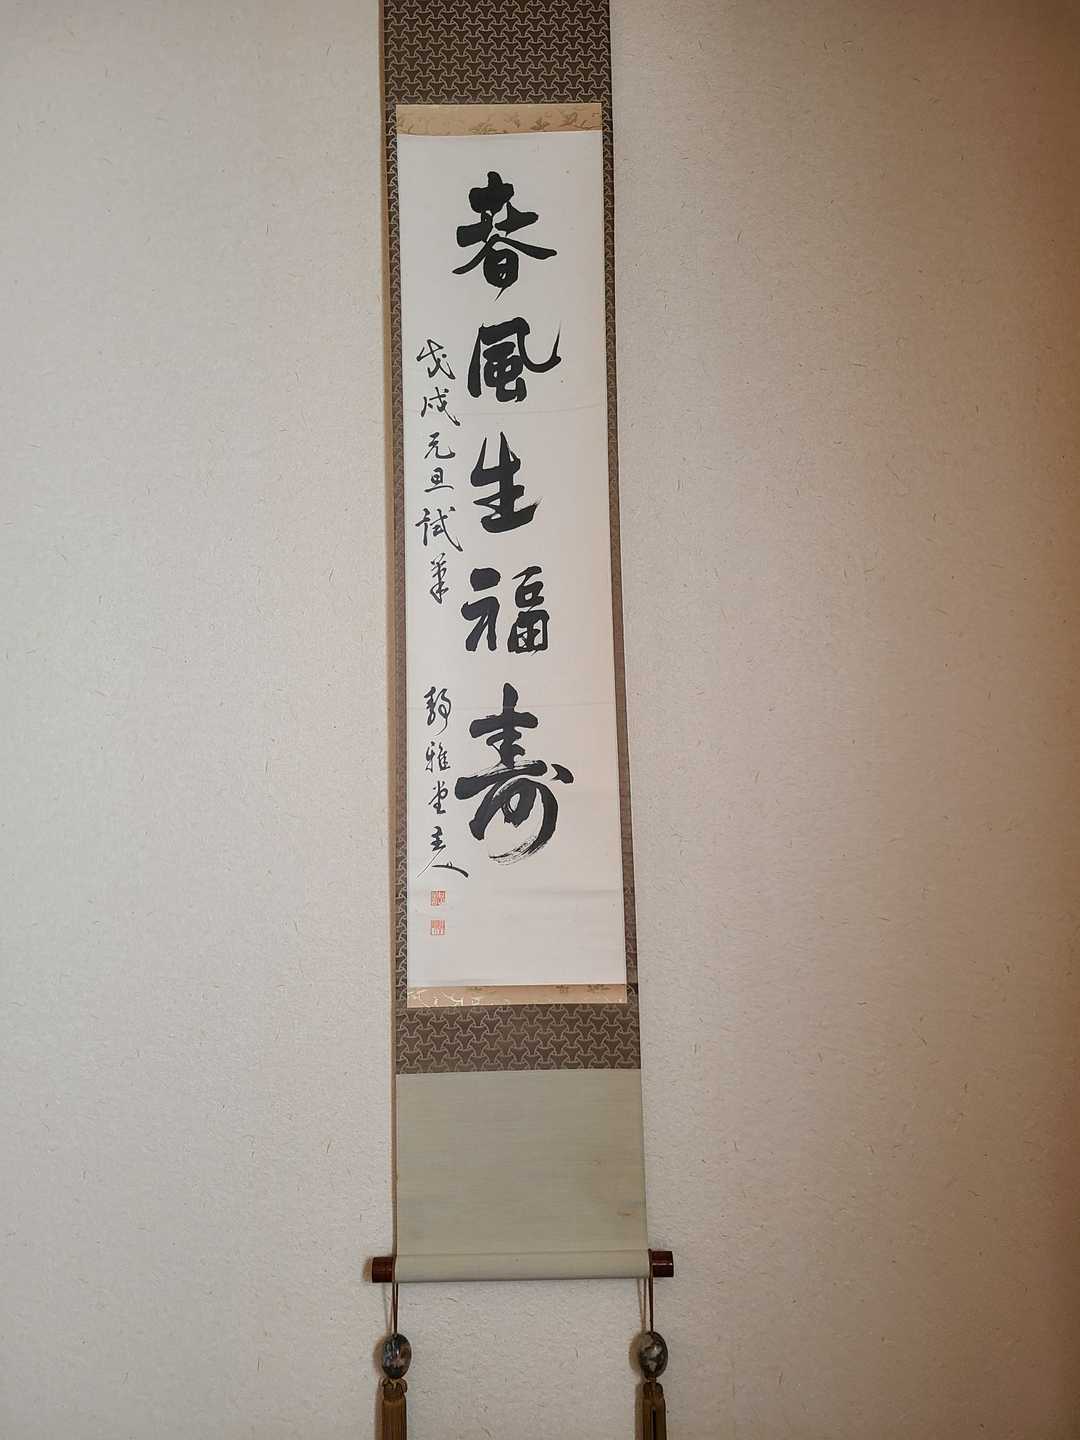 春風生福寿
戊戌元旦試筆 静雅堂主人